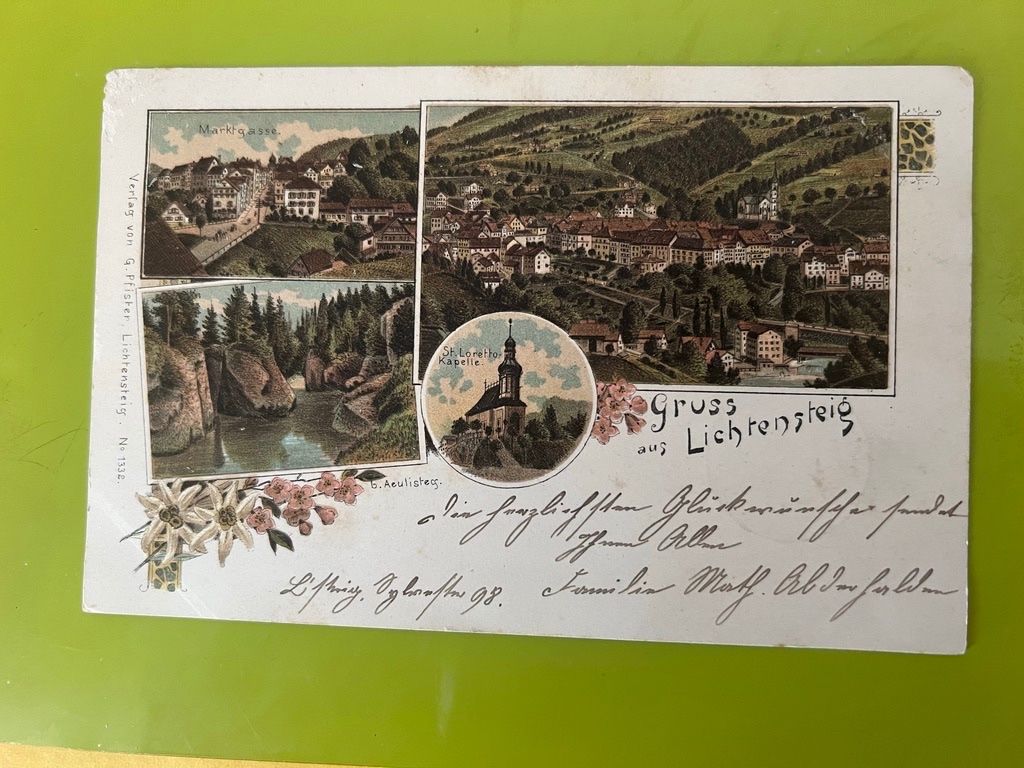 Marktgasse.
Verlag von G. Pfister, Lichtensteig. No 1332.
St. Loretto-
Kapelle.
b. Aeulisteg.
Gruss
aus Lichtensteig
Die herzlichsten Glückwünsche sendet
Ihnen Allen
L'steig, Sylvester 98. Familie Math. Abderhalden